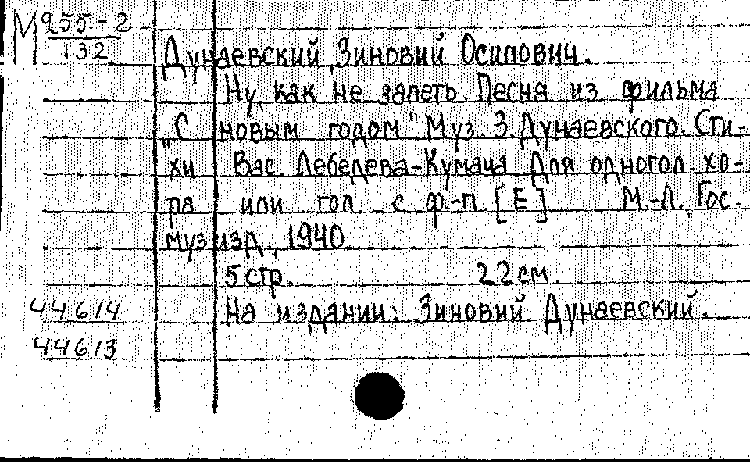 М 955-2
132
Дунаевский, Зиновий Осипович.
Ну, как не запеть. Песня из фильма
"С новым годом" Муз. З. Дунаевского. Сти-
хи Вас. Лебедева-Кумача. Для одногол. хо-
ра или гол. с ф.-п. [Е] М.-Л. Гос.
музизд., 1940.
5 стр. 22 см.
На издании: Зиновий Дунаевский.
44614
44613